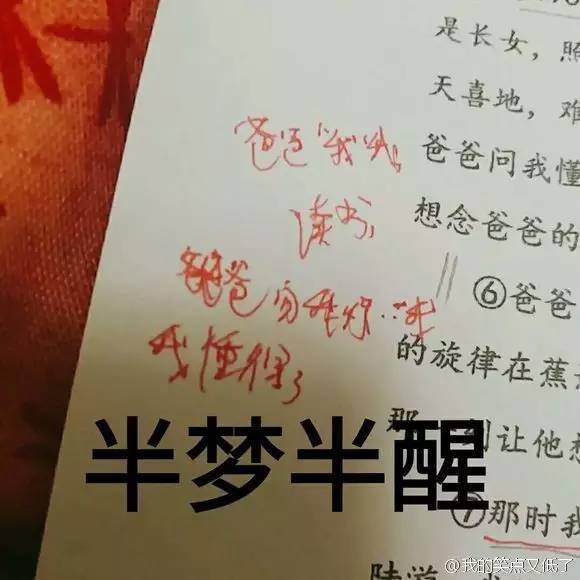 是长女，照
天喜地，难
爸爸问我懂
想念爸爸的
⑥爸爸
的旋律在蕉
那一刻让他想
⑦那时我
爸爸
读书，
爸爸
我懂得了
半梦半醒
@我的笑点又低了